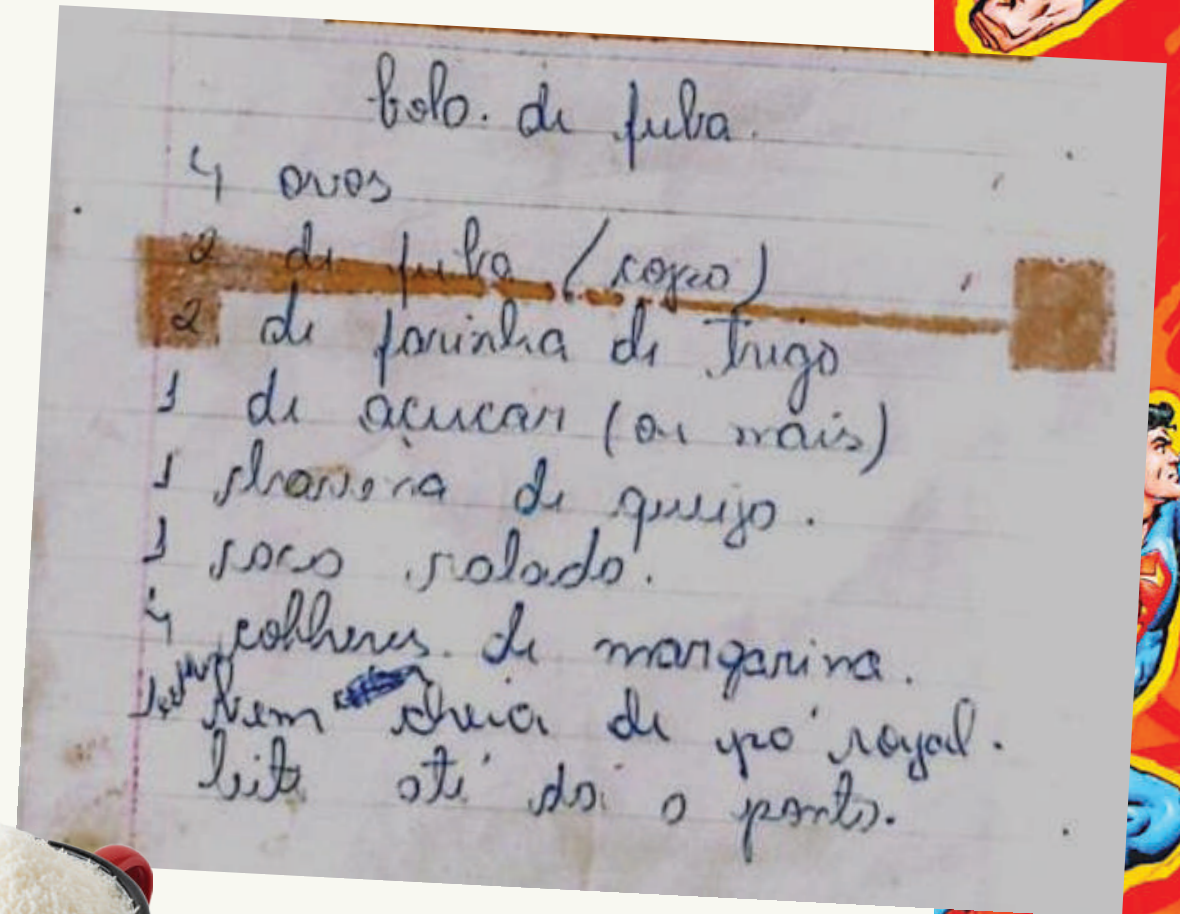 bolo. de fuba.
4 ovos
2 de fuba (copo)
2 de farinha de Trigo
1 de açucar (ou mais)
1 de queijo.
1 coco ralado.
4 colheres. de margarina.
1 bem cheia de pó royal.
leite até da o ponto.